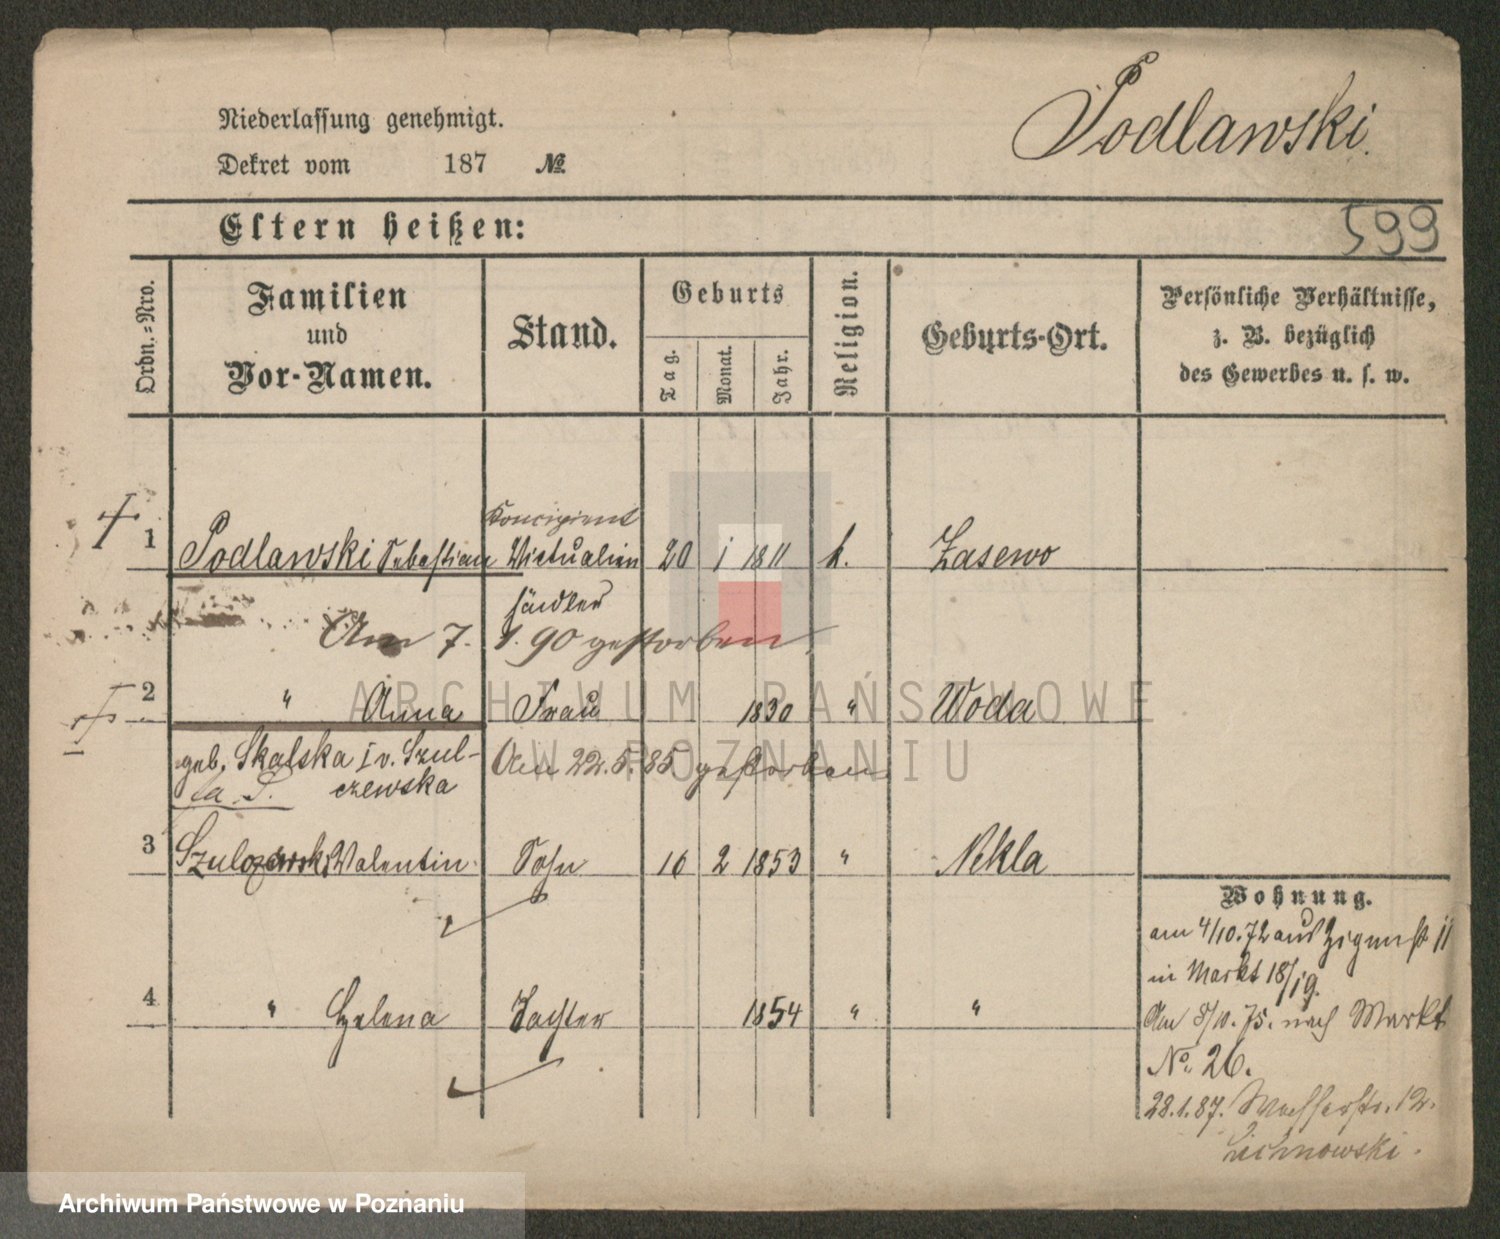 Podlawski.
Niederlassung genehmigt.
Dekret vom 187 №
Eltern heißen:
599
Ordn.=Nro.
Familien
und
Vor-Namen.
Stand.
Geburts
Tag.
Monat.
Jahr.
Religion.
Geburts-Ort.
Persönliche Verhältnisse,
z. B. bezüglich
des Gewerbes u. s. w.
Koncipient
1 Podlawski Sebastian Victualien 20 1 1811 k. Zasewo
händler
Am 7. 1. 90 gestorben.
2 " Anna Frau 1830 " Woda
geb. Skalska I v. Szul-
czewska
Am 22. 5. 85 gestorben
3 Szulczewski Valentin Sohn 16 2 1853 " Nekla
4 " Helena Tochter 1854 " "
Wohnung.
am 4/10.72 aus 11
in Markt 18/19.
Am 8/10.75. nach Markt
No. 26.
28.1.87. Wasserstr. 12.
Lichnowski.
ARCHIWUM PAŃSTWOWE
W POZNANIU
Archiwum Państwowe w Poznaniu